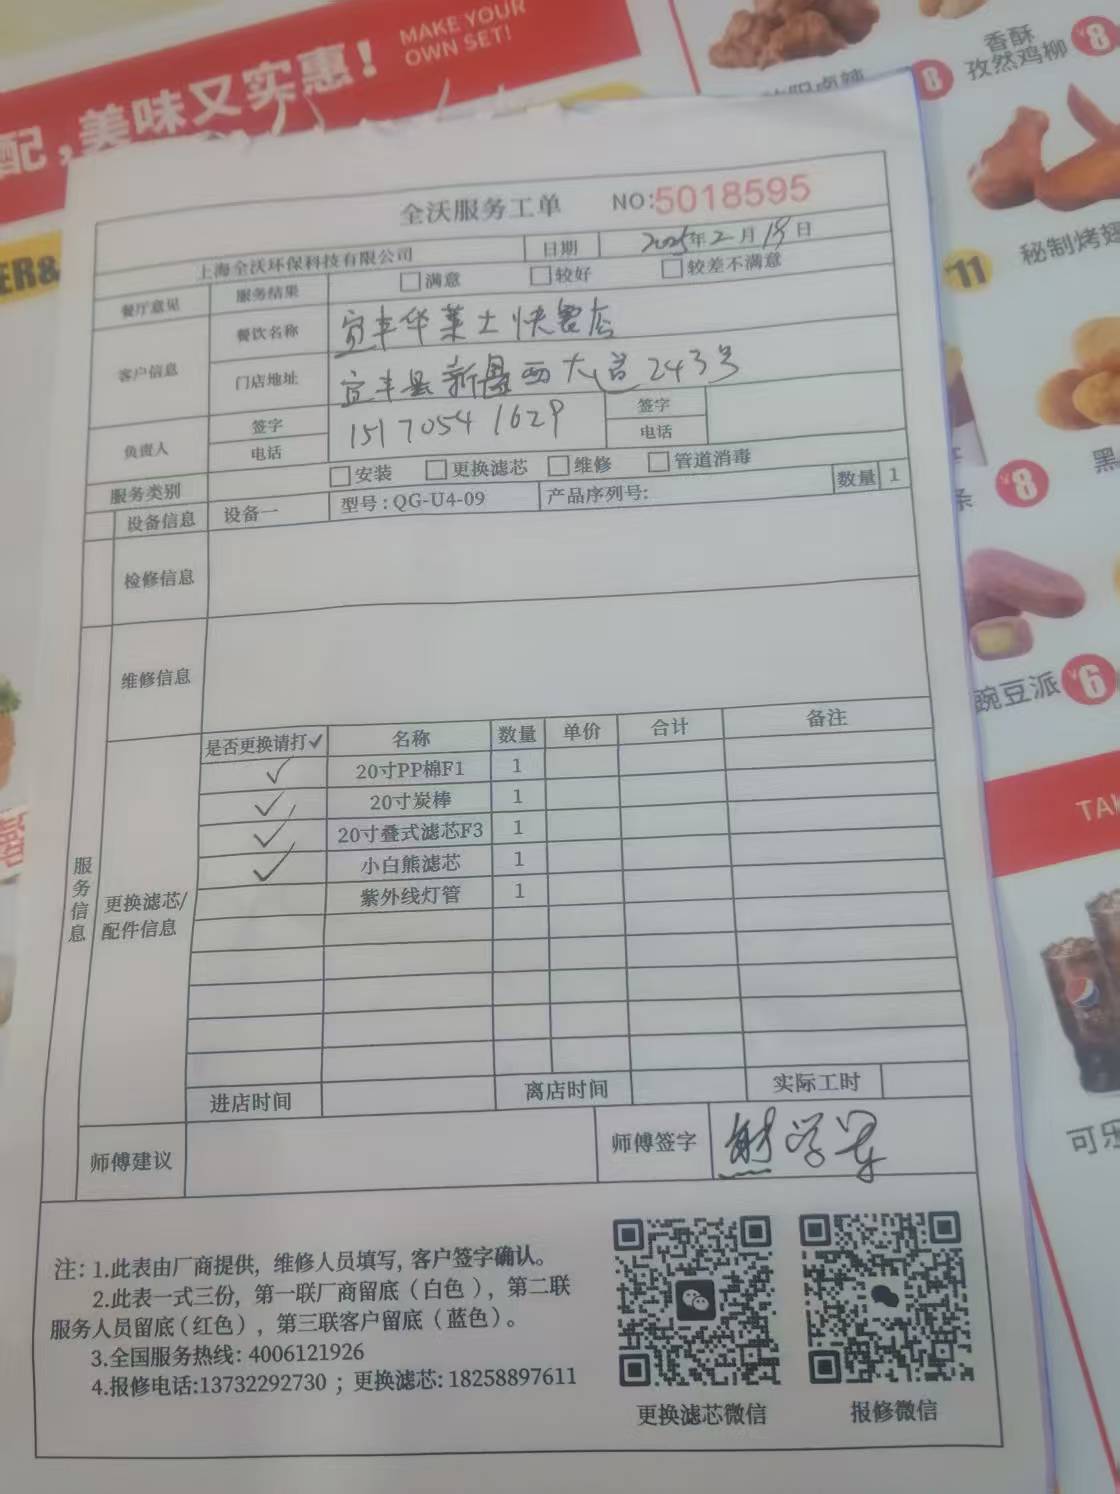 MAKE YOUR
OWN SET!
配，美味又实惠！
香酥
孜然鸡柳
¥8
8
秘制烤翅
¥11
¥8
豌豆派
¥6
可乐
全沃服务工单 NO:5018595
上海全沃环保科技有限公司 日期 2025年2月18日
餐厅意见 服务结果 满意 较好 较差不满意
客户信息 餐饮名称 宜丰华莱士快餐店
门店地址 宜丰县新昌西大道243号
负责人 签字 签字
电话 15170541629 电话
服务类别 安装 更换滤芯 维修 管道消毒
设备信息 设备一 型号：QG-U4-09 产品序列号: 数量 1
检修信息
维修信息
服务信息
更换滤芯/
配件信息
是否更换请打✓ 名称 数量 单价 合计 备注
✓ 20寸PP棉F1 1
✓ 20寸炭棒 1
✓ 20寸叠式滤芯F3 1
✓ 小白熊滤芯 1
紫外线灯管 1
进店时间 离店时间 实际工时
师傅建议 师傅签字 熊学军
注：1.此表由厂商提供，维修人员填写，客户签字确认。
2.此表一式三份，第一联厂商留底（白色），第二联
服务人员留底（红色），第三联客户留底（蓝色）。
3.全国服务热线：4006121926
4.报修电话:13732292730 ；更换滤芯: 18258897611
更换滤芯微信 报修微信